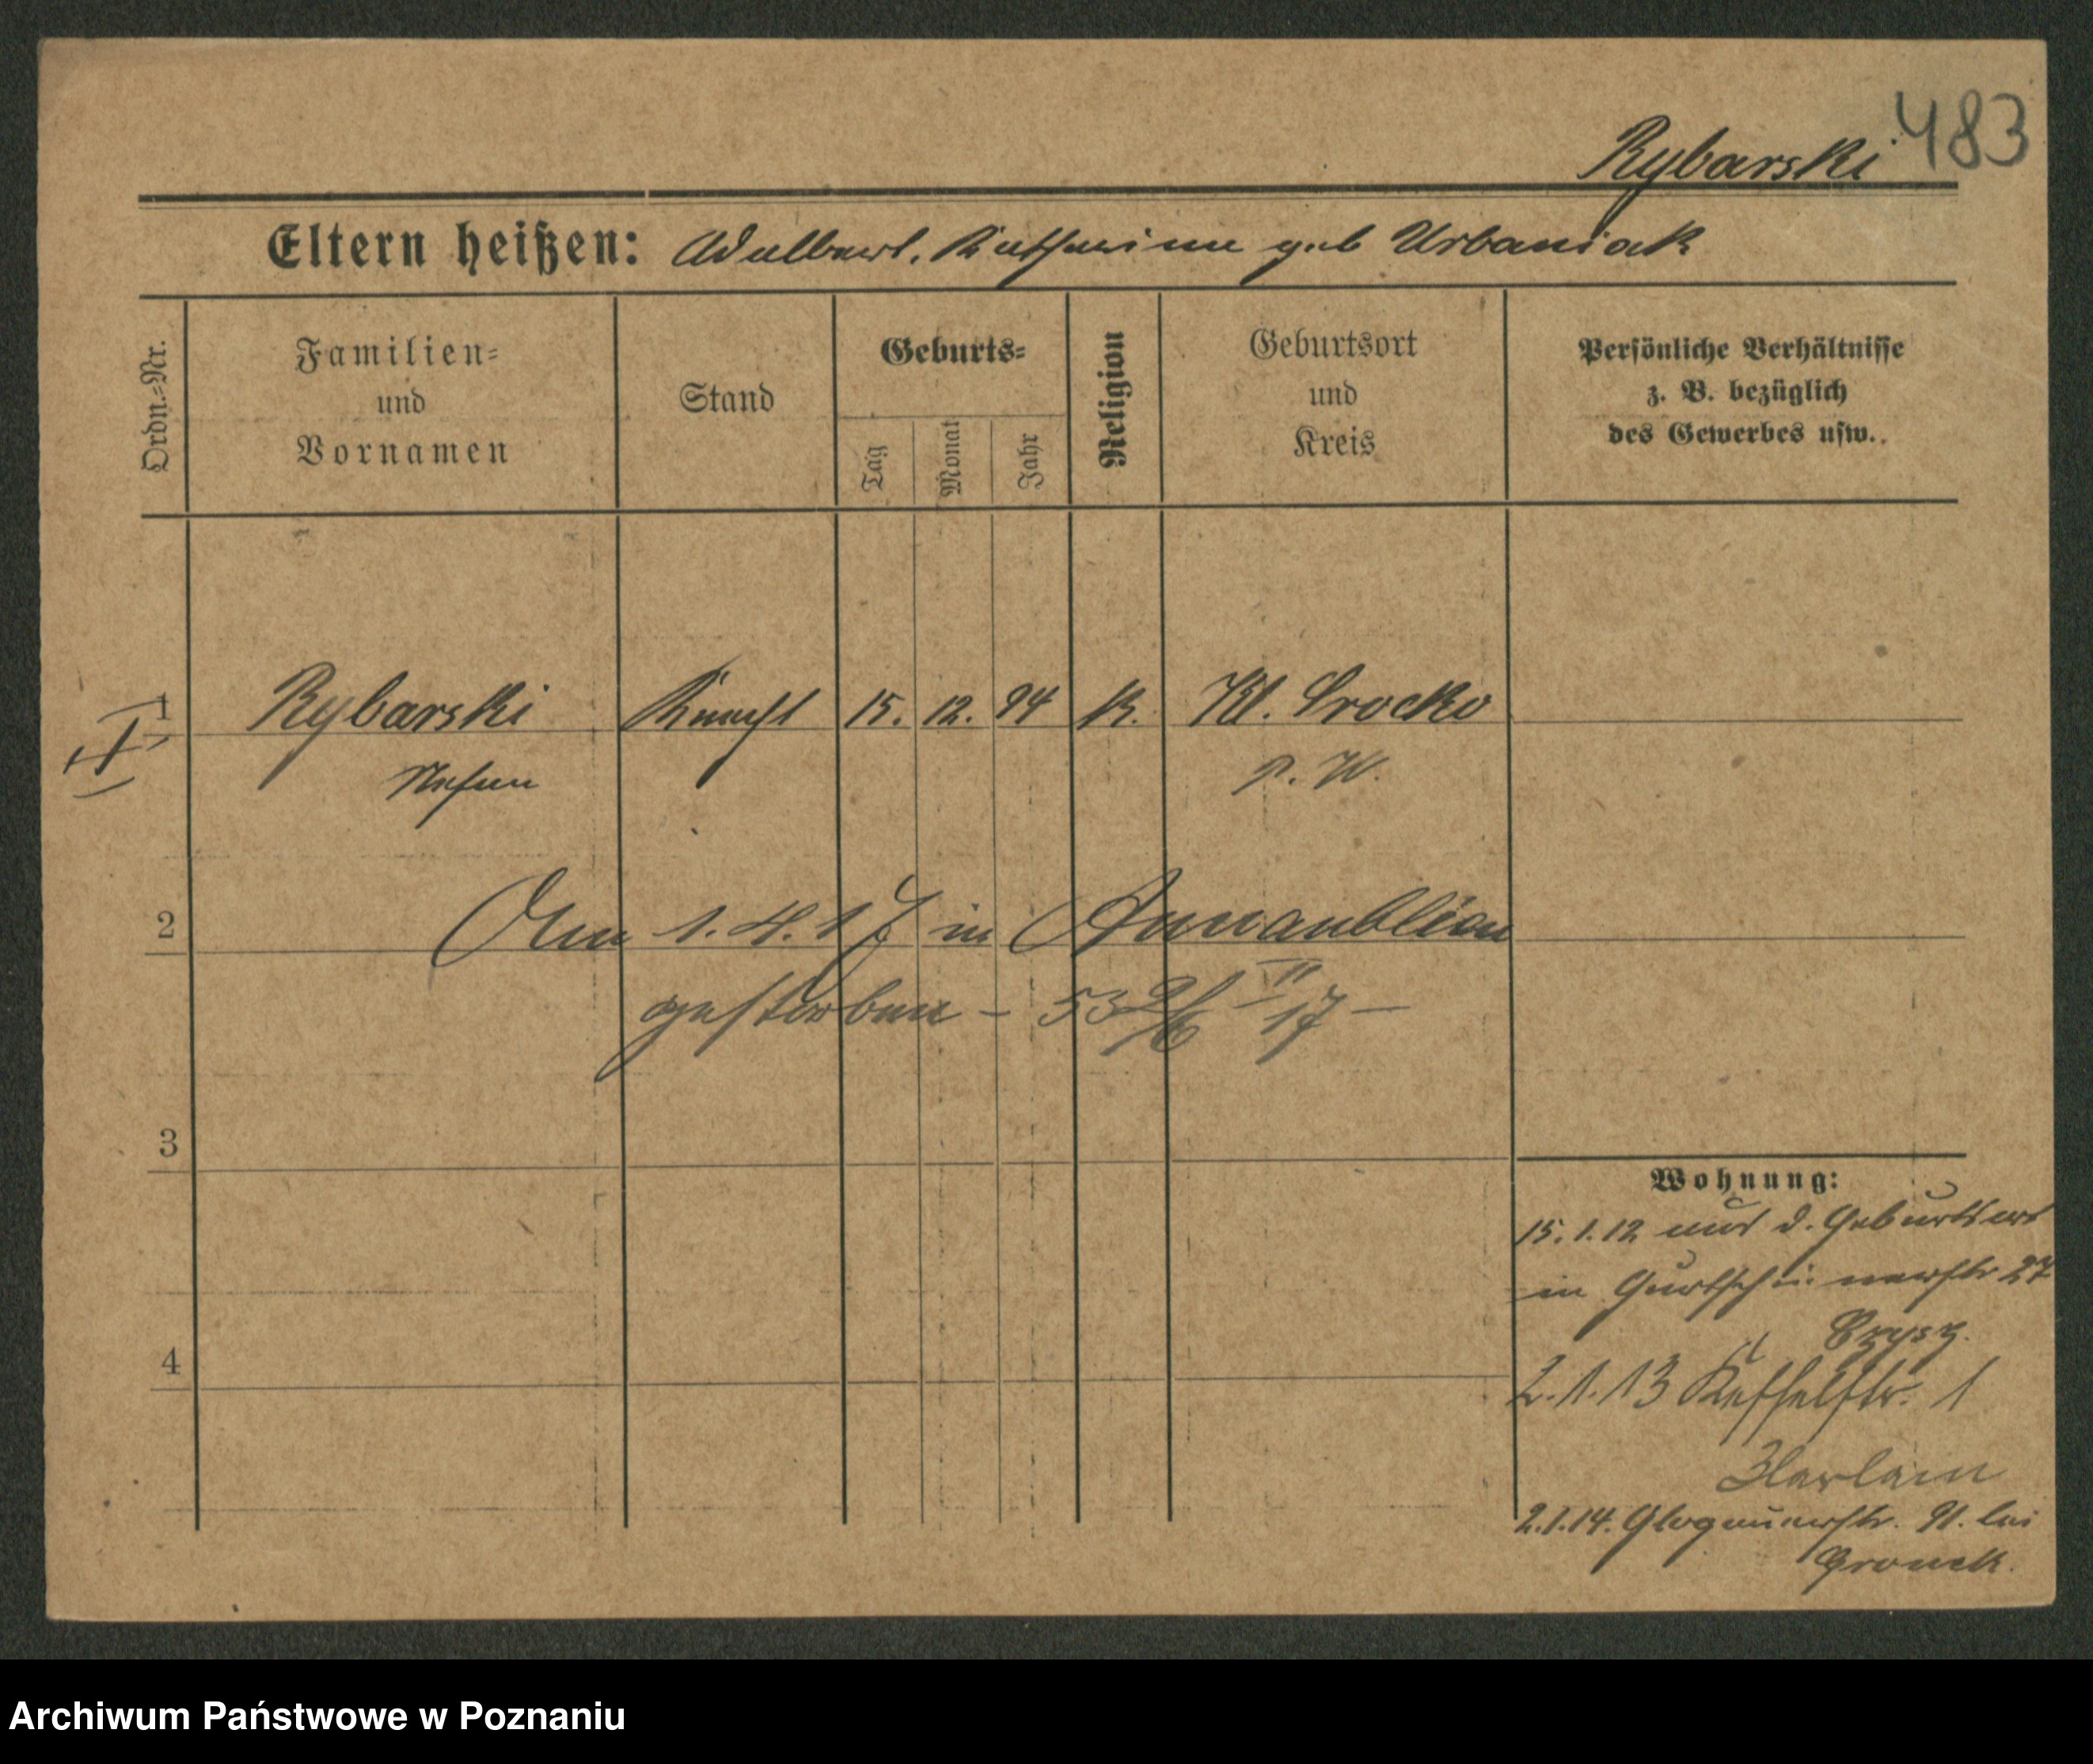 483
Rybarski
Eltern heißen: Adalbert, Katharina geb Urbaniak
Ordn.=Nr.
Familien=
und
Vornamen
Stand
Geburts=
Tag
Monat
Jahr
Religion
Geburtsort
und
Kreis
Persönliche Verhältnisse
z. B. bezüglich
des Gewerbes usw.
1 Rybarski Knecht 15. 12. 94 K. Kl. Srocko
P. W.
2 Am 1.4.17 in
gestorben – 53
3
4
Wohnung:
15.1.12 aus d. Geburtsort
in Gurtschinerstr 27
2.1.13 Kesselstr. 1
2.1.14. Glogauerstr. 91. bei
Gronek.
Archiwum Państwowe w Poznaniu